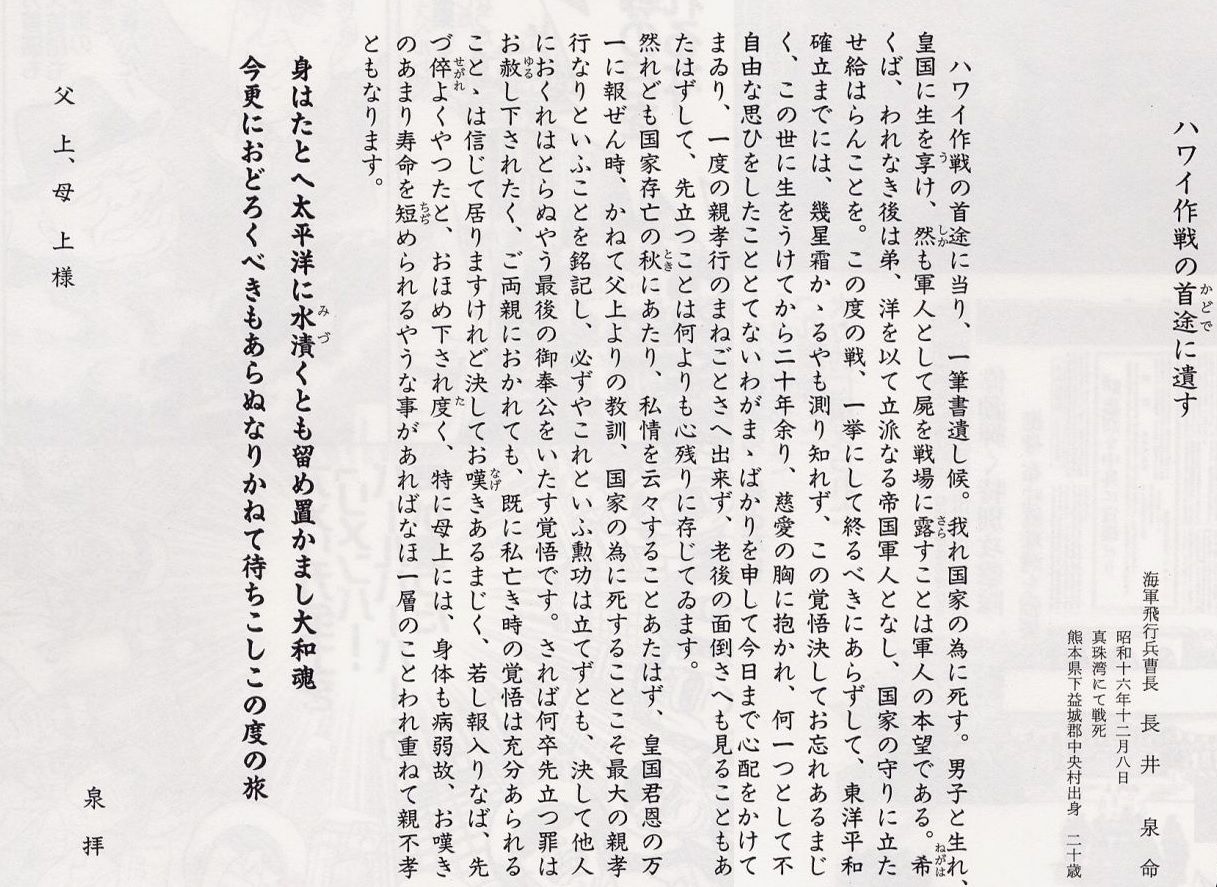 ハワイ作戦の首途に遺す
海軍飛行兵曹長　長井　泉命
昭和十六年十二月八日
真珠湾にて戦死
熊本県下益城郡中央村出身　二十歳
ハワイ作戦の首途に当り、一筆書遺し候。我れ国家の為に死す。男子と生れ、
皇国に生を享け、然も軍人として屍を戦場に露すことは軍人の本望である。希
くば、われなき後は弟、洋を以て立派なる帝国軍人となし、国家の守りに立た
せ給はらんことを。この度の戦、一挙にして終るべきにあらずして、東洋平和
確立までには、幾星霜かゝるやも測り知れず、この覚悟決してお忘れあるまじ
く、この世に生をうけてから二十年余り、慈愛の胸に抱かれ、何一つとして不
自由な思ひをしたこととてないわがまゝばかりを申して今日まで心配をかけて
まゐり、一度の親孝行のまねごとさへ出来ず、老後の面倒さへも見ることもあ
たはずして、先立つことは何よりも心残りに存じてゐます。
然れども国家存亡の秋にあたり、私情を云々することあたはず、皇国君恩の万
一に報ぜん時、かねて父上よりの教訓、国家の為に死することこそ最大の親孝
行なりといふことを銘記し、必ずやこれといふ勲功は立てずとも、決して他人
におくれはとらぬやう最後の御奉公をいたす覚悟です。されば何卒先立つ罪は
お赦し下されたく、ご両親におかれても、既に私亡き時の覚悟は充分あられる
ことゝは信じて居りますけれど決してお嘆きあるまじく、若し報入りなば、先
づ倅よくやつたと、おほめ下され度く、特に母上には、身体も病弱故、お嘆き
のあまり寿命を短められるやうな事があればなほ一層のことわれ重ねて親不孝
ともなります。
身はたとへ太平洋に水漬くとも留め置かまし大和魂
今更におどろくべきもあらぬなりかねて待ちこしこの度の旅
泉　拝
父　上、母　上　様